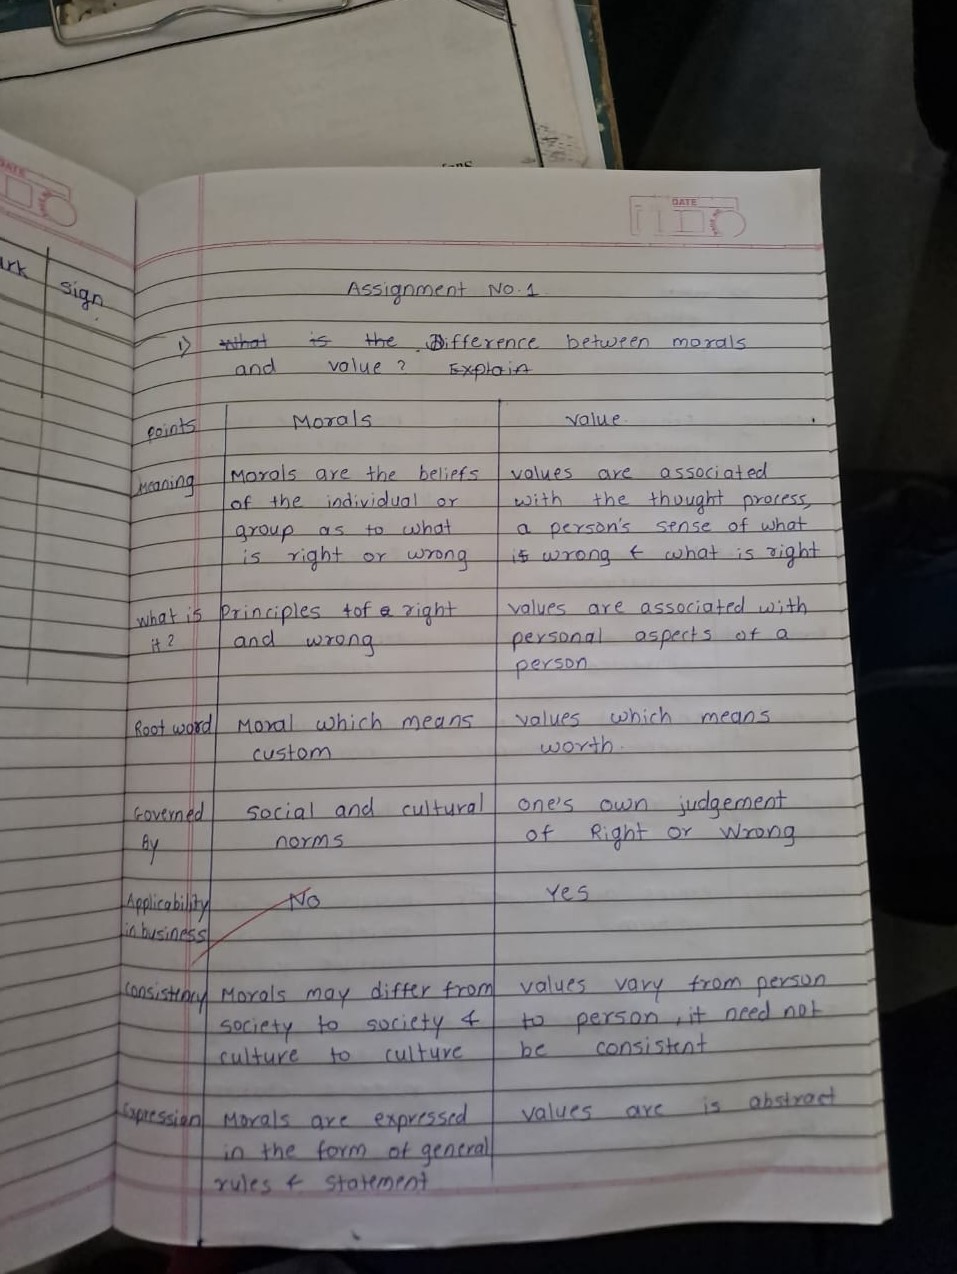 DATE
DATE
ark
sign
Assignment No. 1
1) What is the Difference between morals
and value? Explain
points
Morals
value
Meaning
Morals are the beliefs
of the individual or
group as to what
is right or wrong
values are associated
with the thought process,
a person's sense of what
is wrong & what is right
what is
it?
Principles of right
and wrong
values are associated with
personal aspects of a
person
Root word
Moral which means
custom
values which means
worth.
Governed
By
Social and cultural
norms
one's own judgement
of Right or Wrong
Applicability
in business
No
Yes
Consistency
Morals may differ from
society to society &
culture to culture
values vary from person
to person, it need not
be consistent
Expression
Morals are expressed
in the form of general
rules & statement
values are is abstract